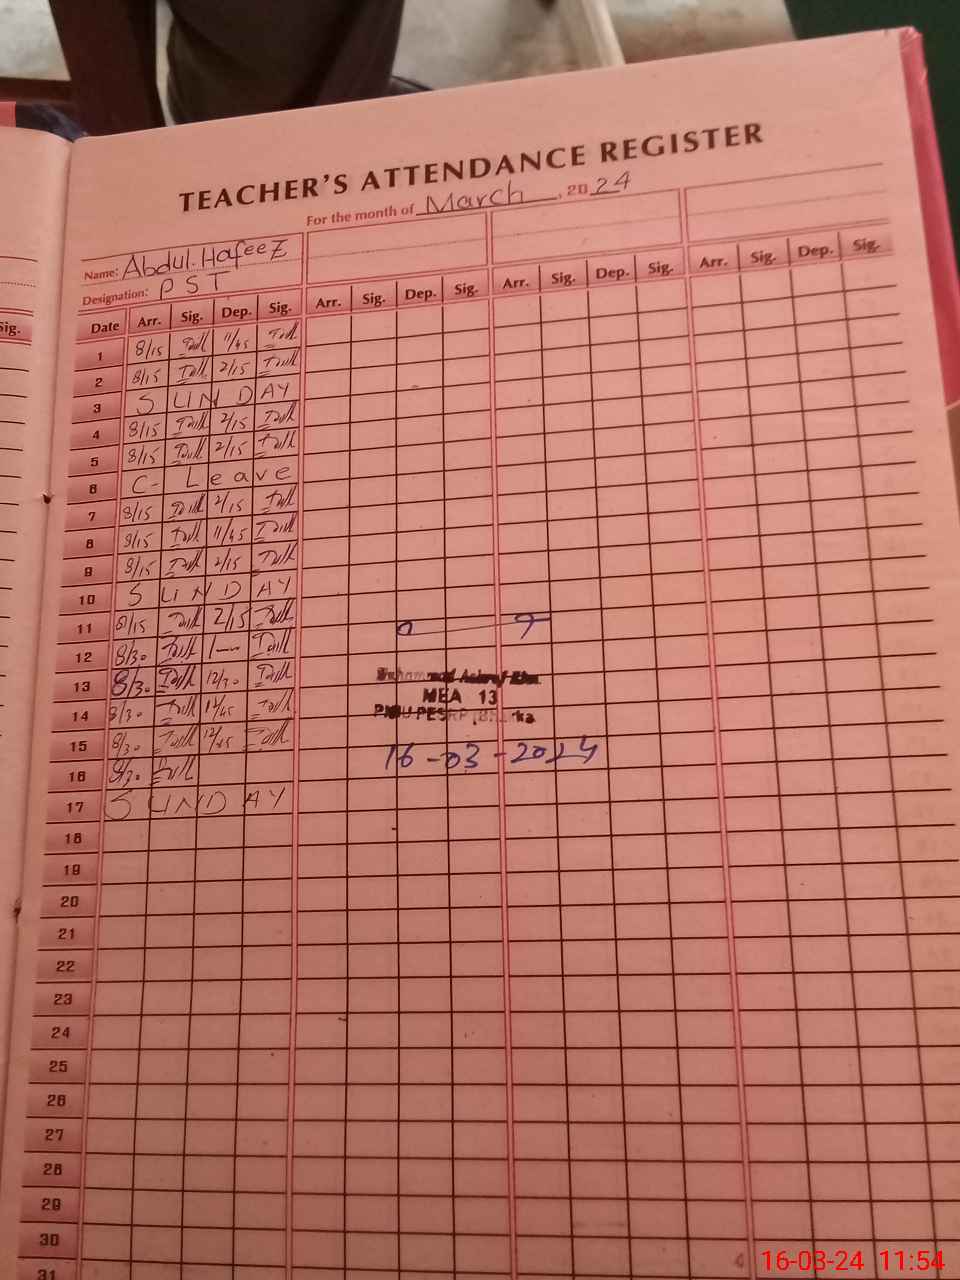 TEACHER'S ATTENDANCE REGISTER
For the month of March, 2024
Name: Abdul.Hafeez
Designation: PST
Sig.
Date Arr. Sig. Dep. Sig. Arr. Sig. Dep. Sig. Arr. Sig. Dep. Sig. Arr. Sig. Dep. Sig.
1 8/15 11/45
2 8/15 2/15
3 SUNDAY
4 8/15 2/15
5 8/15 2/15
6 C- Leave
7 8/15 2/15
8 8/15 11/45
9 8/15 2/15
10 SUNDAY
11 8/15 2/15
12 8/30
13 8/30 12/30
14 8/30
15 8/30
16 8/30
17 SUNDAY
MEA 13
16-03-2024
18
19
20
21
22
23
24
25
26
27
28
29
30
31
16-03-24 11:54